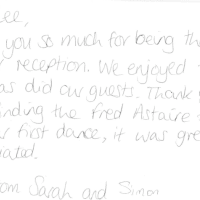 ee,
you so much for being th
reception. We enjoyed
as did our guests. Thank
nding the Fred Astaire
r first dance, it was gre
iated.
om Sarah and Simon